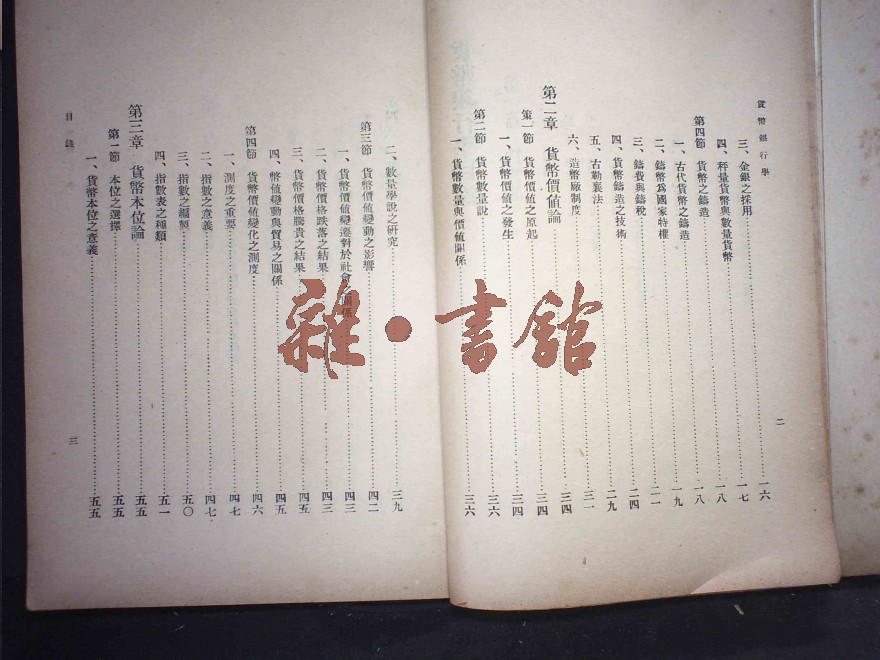 貨幣銀行學
三、金銀之採用……一六
四、秤量貨幣與數量貨幣……一七
第四節 貨幣之鑄造……一八
一、古代貨幣之鑄造……一八
二、鑄幣爲國家特權……一九
三、鑄費與鑄稅……二一
四、貨幣鑄造之技術……二四
五、古勒襄法……二九
六、造幣廠制度……三一
第二章 貨幣價値論……三四
第一節 貨幣價値之原起……三四
一、貨幣價値之發生……三四
第二節 貨幣數量說……三六
一、貨幣數量與價値關係……三六
二
二、數量學說之硏究……三九
第三節 貨幣價値變動之影響……四二
一、貨幣價値變遷對於社會之關係……四三
二、貨幣價格跌落之結果……四三
三、貨幣價格騰貴之結果……四五
四、幣値變動與貿易之關係……四五
第四節 貨幣價値變化之測度……四六
一、測度之重要……四七
二、指數之意義……四七
三、指數之編製……五〇
四、指數表之種類……五一
第三章 貨幣本位論……五五
第一節 本位之選擇……五五
一、貨幣本位之意義……五五
目錄
三
雜·書館